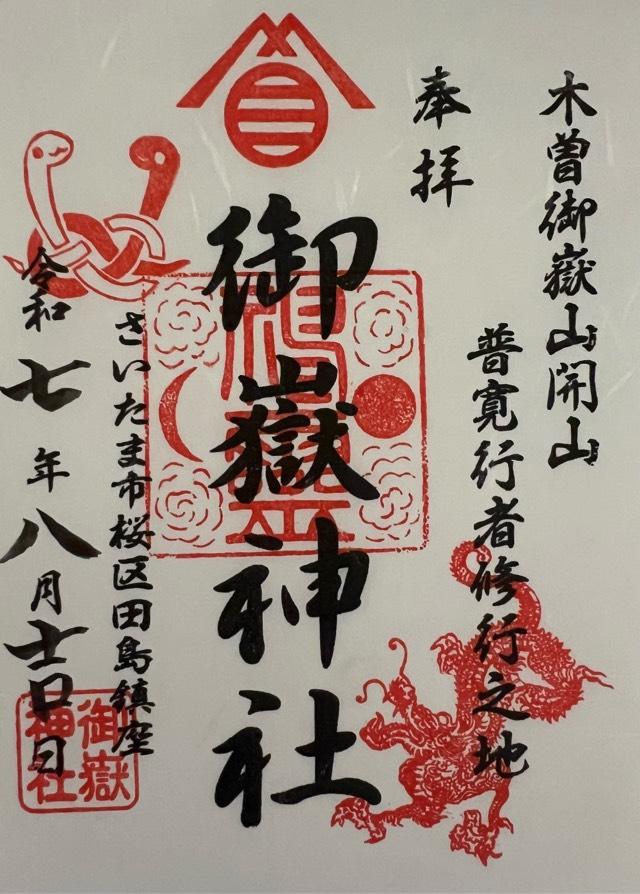 木曽御嶽山開山
普寛行者修行之地
奉拝
御嶽神社
さいたま市桜区田島鎮座
令和七年八月吉日
御嶽
神社
三